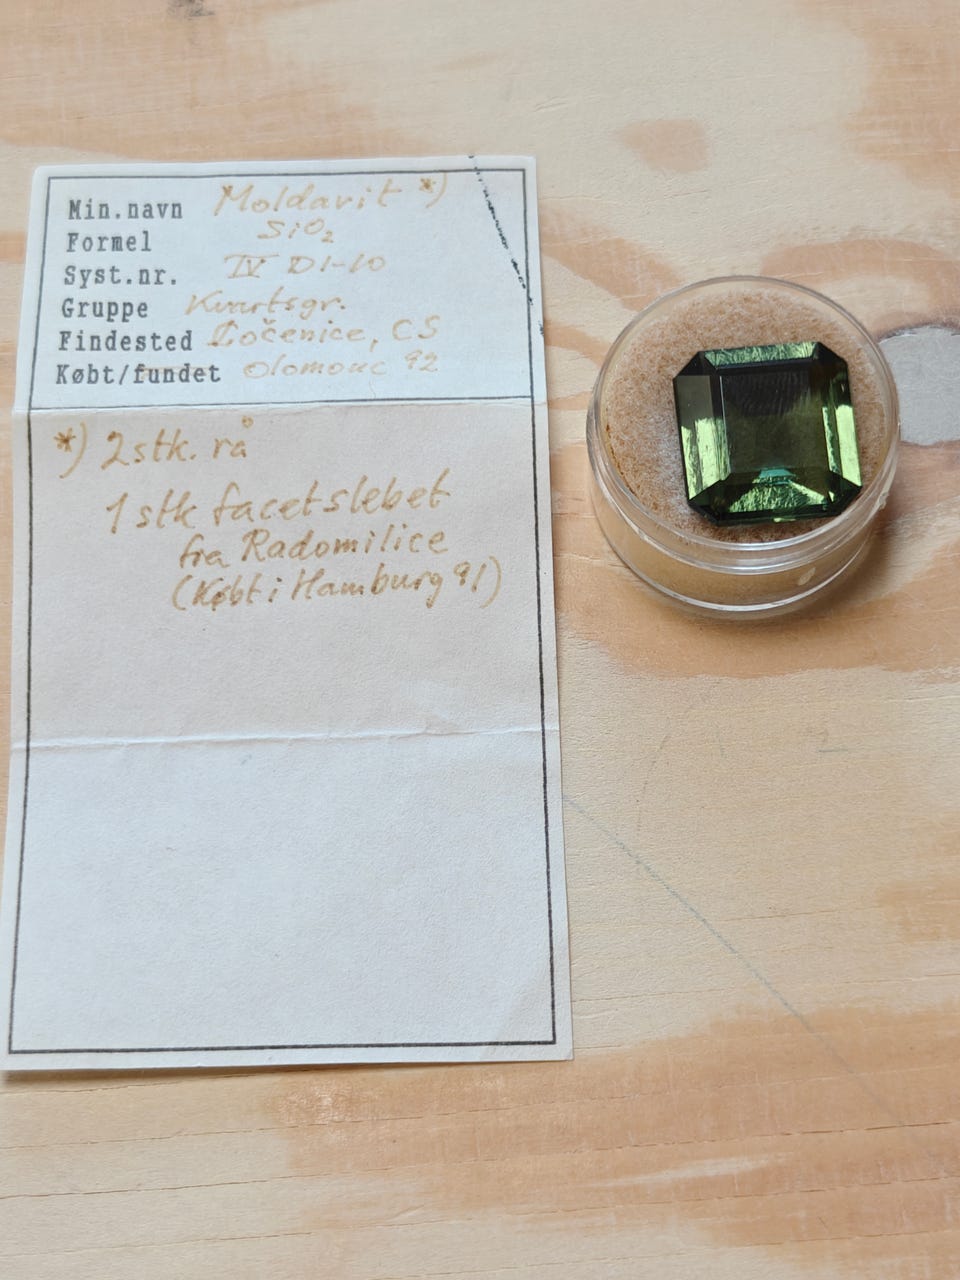 Min.navn Moldavit *)
Formel SiO₂
Syst.nr. IV D1-10
Gruppe Kvartsgr.
Findested Ločenice, CS
Købt/fundet Olomouc 92
*) 2 stk. rå
1 stk facetslebet
fra Radomilice
(Købt i Hamburg 91)